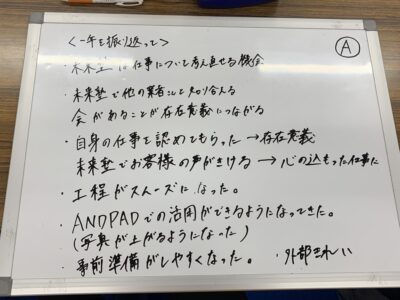 ＜一年を振り返って＞
Ⓐ
・未来塾は仕事について考え直せる機会
・未来塾で他の業者さんと知り合える
会があることが存在意義につながる
・自身の仕事を認めてもらった→存在意義
未来塾でお客様の声がきける→心の込もった仕事に
・工程がスムーズになった。
・ANDPADでの活用ができるようになってきた。
(写真が上がるようになった)
・事前準備がしやすくなった。 ・外部きれい